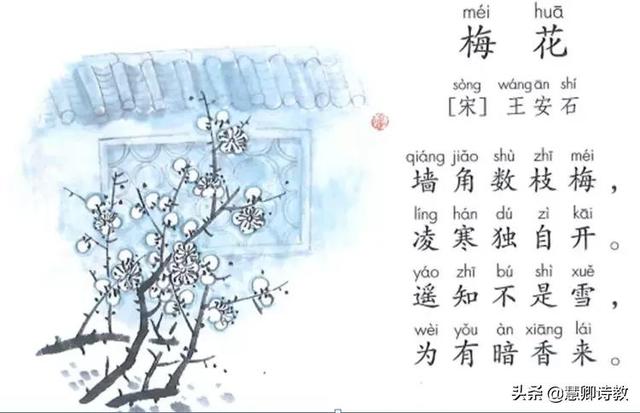 méi huā
梅花
sòng wángān shí
[宋] 王安石
qiáng jiǎo shù zhī méi
墙角数枝梅，
líng hán dú zì kāi
凌寒独自开。
yáo zhī bú shì xuě
遥知不是雪，
wèi yǒu àn xiāng lái
为有暗香来。
头条 @慧卿诗教